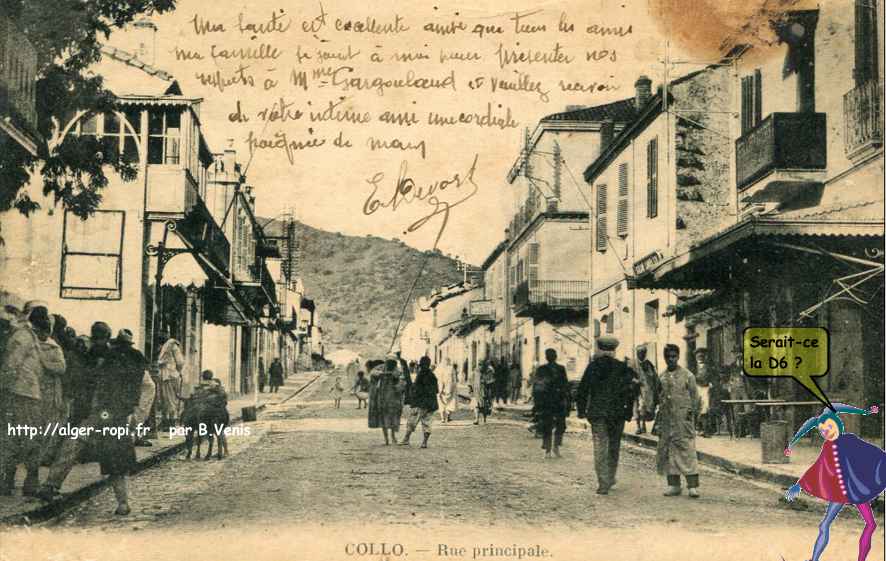 Ma Santé est excellente ainsi que tous les amis
ma famille se joint à moi pour présenter nos
respects à Mme Gargouland et veuillez recevoir
de votre intime ami une cordiale
poignée de main
Serait-ce
la D6 ?
http://alger-roi.fr par B.Venis
COLLO. — Rue principale.